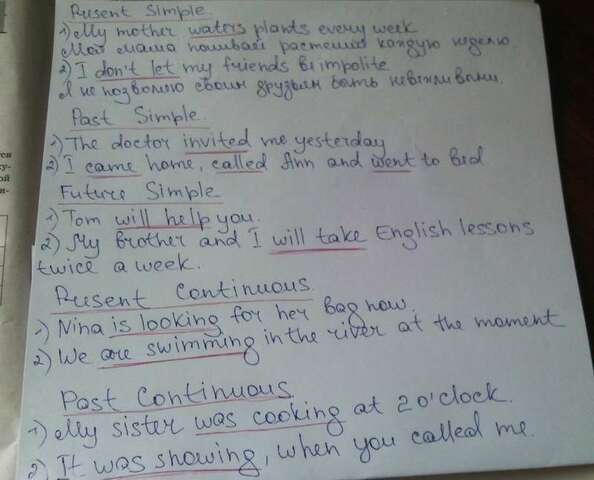 Present Simple
1) My mother waters plants every week
Моя мама поливает растения каждую неделю.
2) I don't let my friends be impolite
Я не позволяю своим друзьям быть невежливыми.
Past Simple
1) The doctor invited me yesterday
2) I came home, called Ann and went to bed
Future Simple
1) Tom will help you.
2) My brother and I will take English lessons
twice a week.
Present Continuous
1) Nina is looking for her bag now.
2) We are swimming in the river at the moment
Past Continuous
1) My sister was cooking at 2 o'clock.
2) It was showing, when you called me.